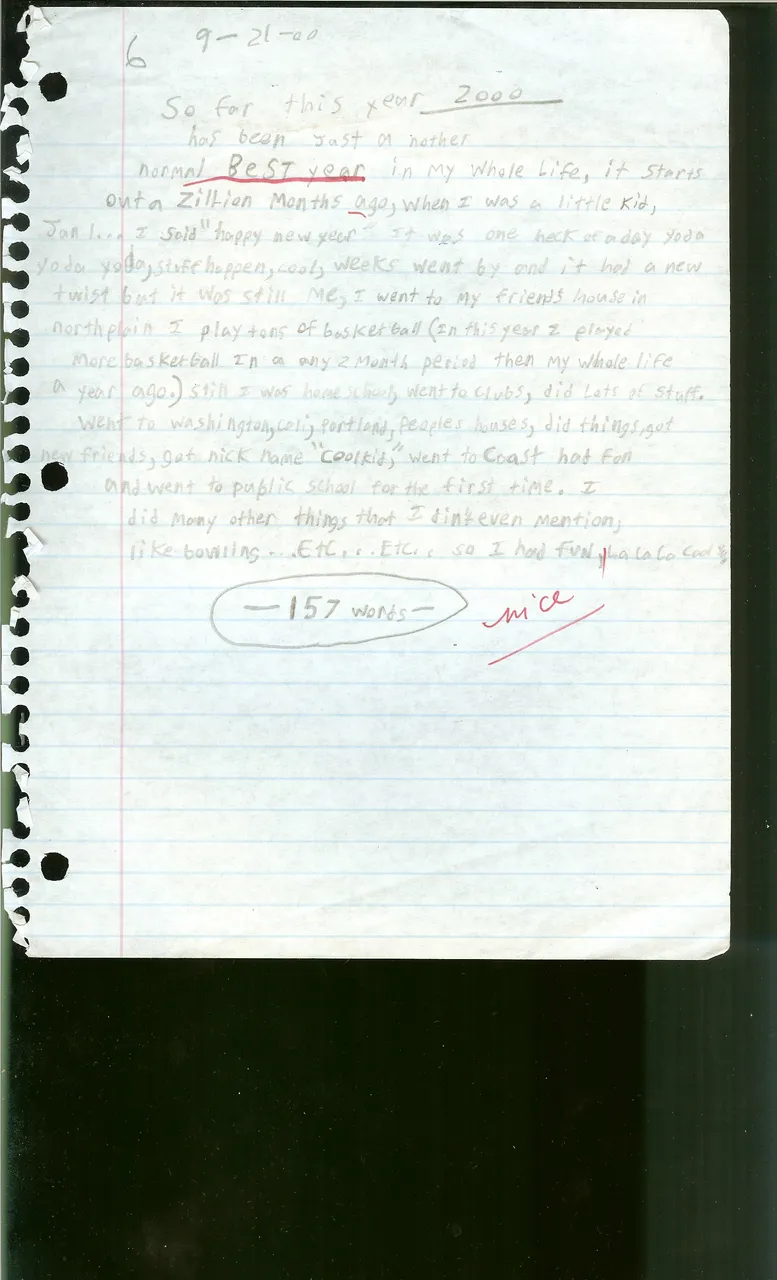 6 9-21-00
So far this year 2000
has been Just a nother
normal BeST year in My whole Life, it starts
out a Zillion Months ago, when I was a little kid,
Jan 1... I said "happy new year" It was one heck of a day yoda
yoda yoda, stuff happen, cool, weeks went by and it had a new
twist but it was still me, I went to my friends house in
northplain I play tons of basketball (In this year I played
More basketball In a any 2 Month period then My whole life
a year ago.) still I was home school, went to clubs, did Lots of stuff.
went to washington, cali, portland, peoples houses, did things, got
new friends, got nick name "coolkid," went to Coast had fon
and went to public school for the first time. I
did many other things that I din't even mention,
like bowling... Etc... Etc.. so I had fun, La La La Cool
—157 words—
nice